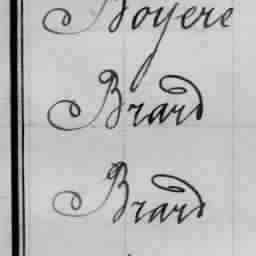 Boyere
Brard
Brard